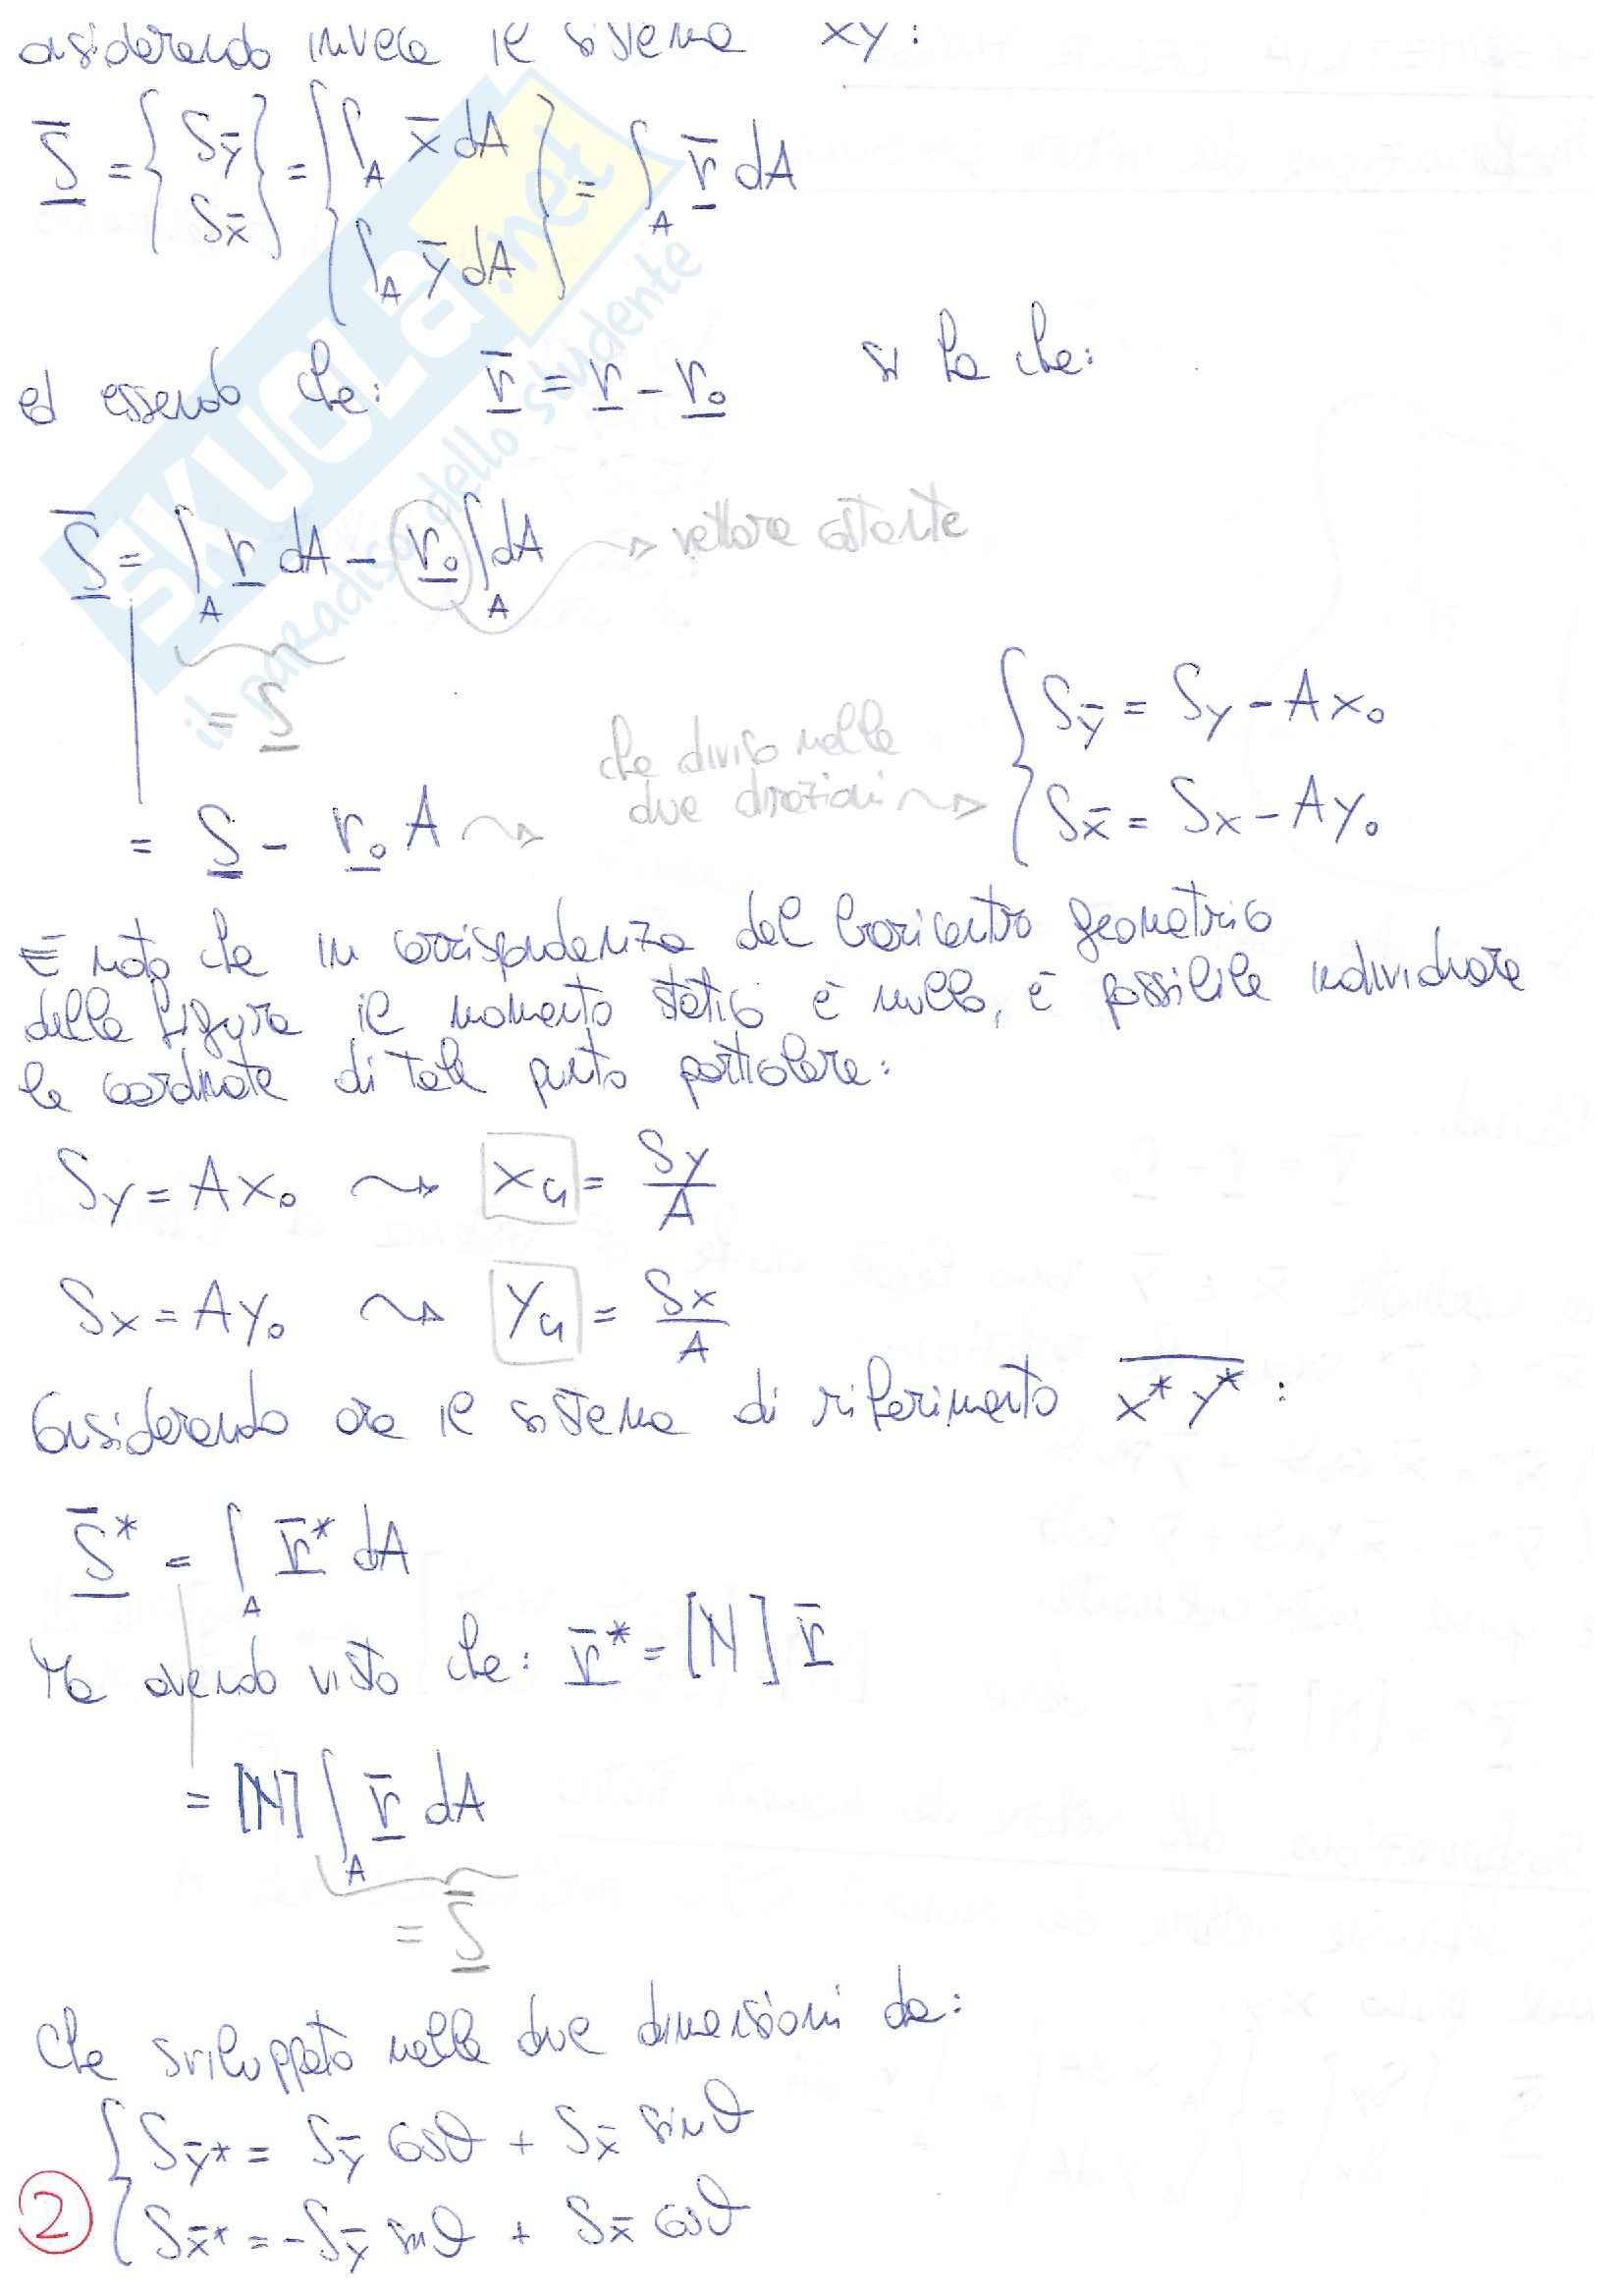 considerando invece il sistema x̄ȳ:
S̲̄ = { S_ȳ ; S_x̄ } = { ∫_A x̄ dA ; ∫_A ȳ dA } = ∫_A r̲̄ dA
ed essendo che: r̲̄ = r̲ - r̲₀ si ha che:
S̲̄ = ∫_A r̲ dA - r̲₀ ∫_A dA → vettore costante
= S̲
= S̲ - r̲₀ A → che diviso nelle due direzioni → { S_ȳ = S_y - A x₀ ; S_x̄ = S_x - A y₀
È noto che in corrispondenza del baricentro geometrico
della figura il momento statico è nullo, è possibile individuare
le coordinate di tale punto particolare:
S_y = A x₀ → x_G = S_y / A
S_x = A y₀ → y_G = S_x / A
Considerando ora il sistema di riferimento x̄* ȳ* :
S̲̄* = ∫_A r̲̄* dA
Ma avendo visto che: r̲̄* = [N] r̲̄
= [N] ∫_A r̲̄ dA
= S̲̄
Che sviluppato nelle due dimensioni da:
S_ȳ* = S_ȳ cosϑ + S_x̄ sinϑ
② S_x̄* = -S_ȳ sinϑ + S_x̄ cosϑ
SKUOLA.net
il paradiso dello studente